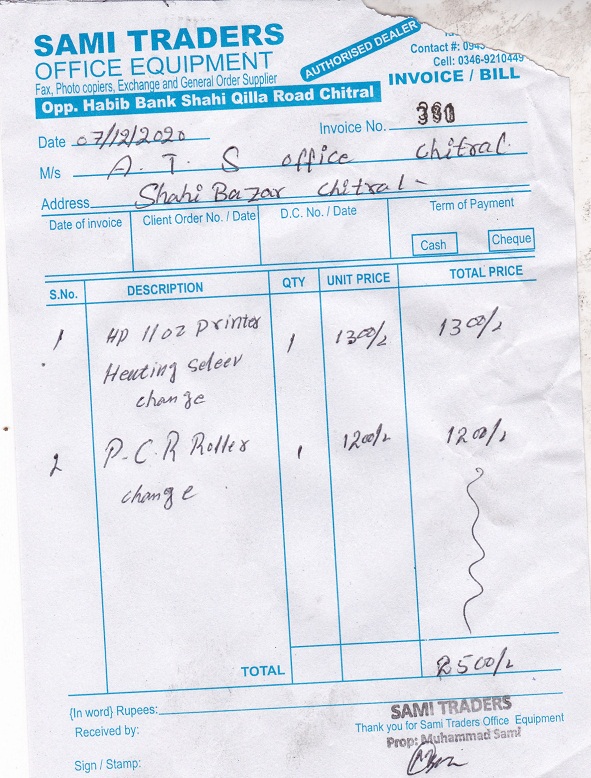 SAMI TRADERS
OFFICE EQUIPMENT
Fax, Photo copiers, Exchange and General Order Supplier
Opp. Habib Bank Shahi Qilla Road Chitral
AUTHORISED DEALER
Contact #: 094
Cell: 0346-9210449
INVOICE / BILL
Date 07/12/2020
Invoice No. 390
M/s A. T. S office chitral.
Address Shahi Bazar chitral -
Date of invoice Client Order No. / Date D.C. No. / Date Term of Payment
Cash Cheque
S.No. DESCRIPTION QTY UNIT PRICE TOTAL PRICE
1 HP 1102 Printer 1 1300/2 1300/2
Heating seleev
change
2 P-C.R Roller 1 1200/2 1200/2
change
TOTAL 2500/2
{In word} Rupees:
Received by:
Sign / Stamp:
SAMI TRADERS
Thank you for Sami Traders Office Equipment
Prop: Muhammad Sami